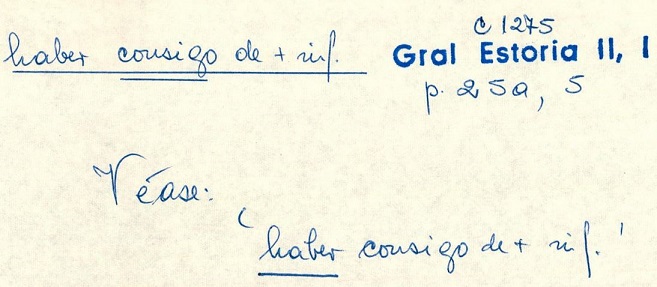 c 1275
haber consigo de + inf. Gral Estoria II, I
p. 25a, 5
Véase:
'haber consigo de + inf.'